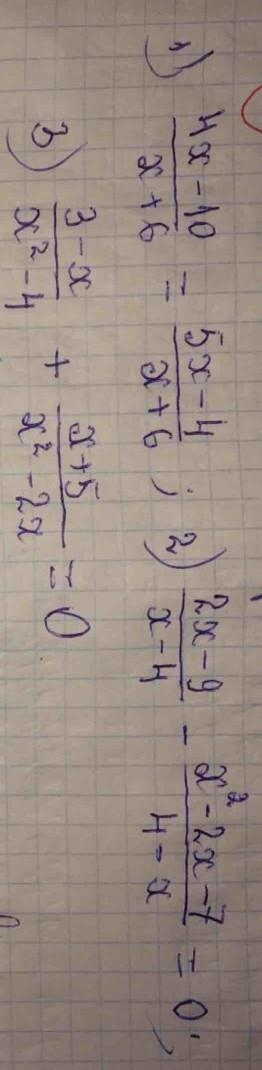 1) (4x-10)/(x+6) = (5x-4)/(x+6) ; 2) (2x-9)/(x-4) - (x²-2x-7)/(4-x) = 0;
3) (3-x)/(x²-4) + (x+5)/(x²-2x) = 0